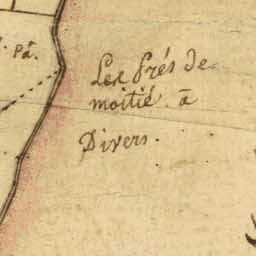 Les Prés de
moitié à
Divers.